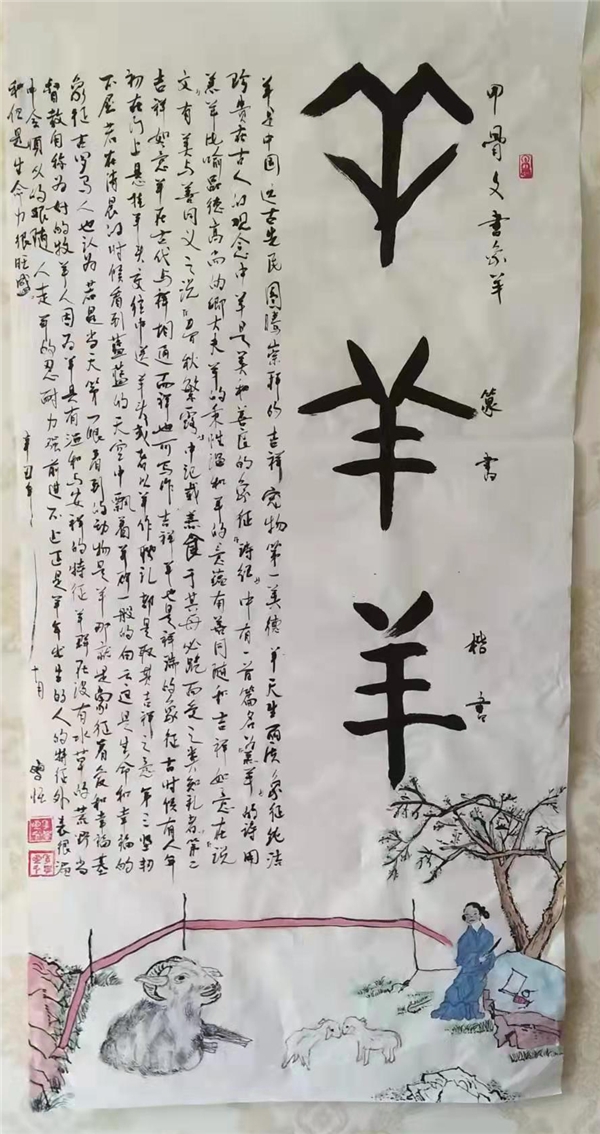 甲骨文书象羊
羊
篆书
羊
楷书
羊
羊是中国远古先民图腾崇拜的吉祥宠物第一美德羊天生丽质象征纯洁
珍贵在古人的观念中羊是美和善良的象征《诗经》中有一首篇名《羔羊》的诗用
羔羊比喻品德高尚的卿大夫羊的秉性温和羊的意蕴有善同随和吉祥如意在说
文有美与善同义之说《春秋繁露》中记载羔食于其母必跪而受之类知礼者第二
吉祥如意羊在古代与祥相通而祥也可写作吉祥羊也是祥瑞的象征古时候有人年
初在门上悬挂羊头交往中送羊头或者以羊作聘礼都是取其吉祥之意第三坚韧
不屈若在清晨的时候看到蓝蓝的天空中飘着羊群一般的白云这是生命和幸福的
象征古罗马人也认为若是当天第一眼看到的动物是羊那就是象征着爱和幸福基
督教自称为好的牧羊人因为羊具有温和与安祥的特征羊群在没有水草的荒野当
中会顺从的跟随人走羊的忍耐力强前进不止正是羊年出生的人的特征外表很温
和但是生命力很旺盛
辛丑年十月